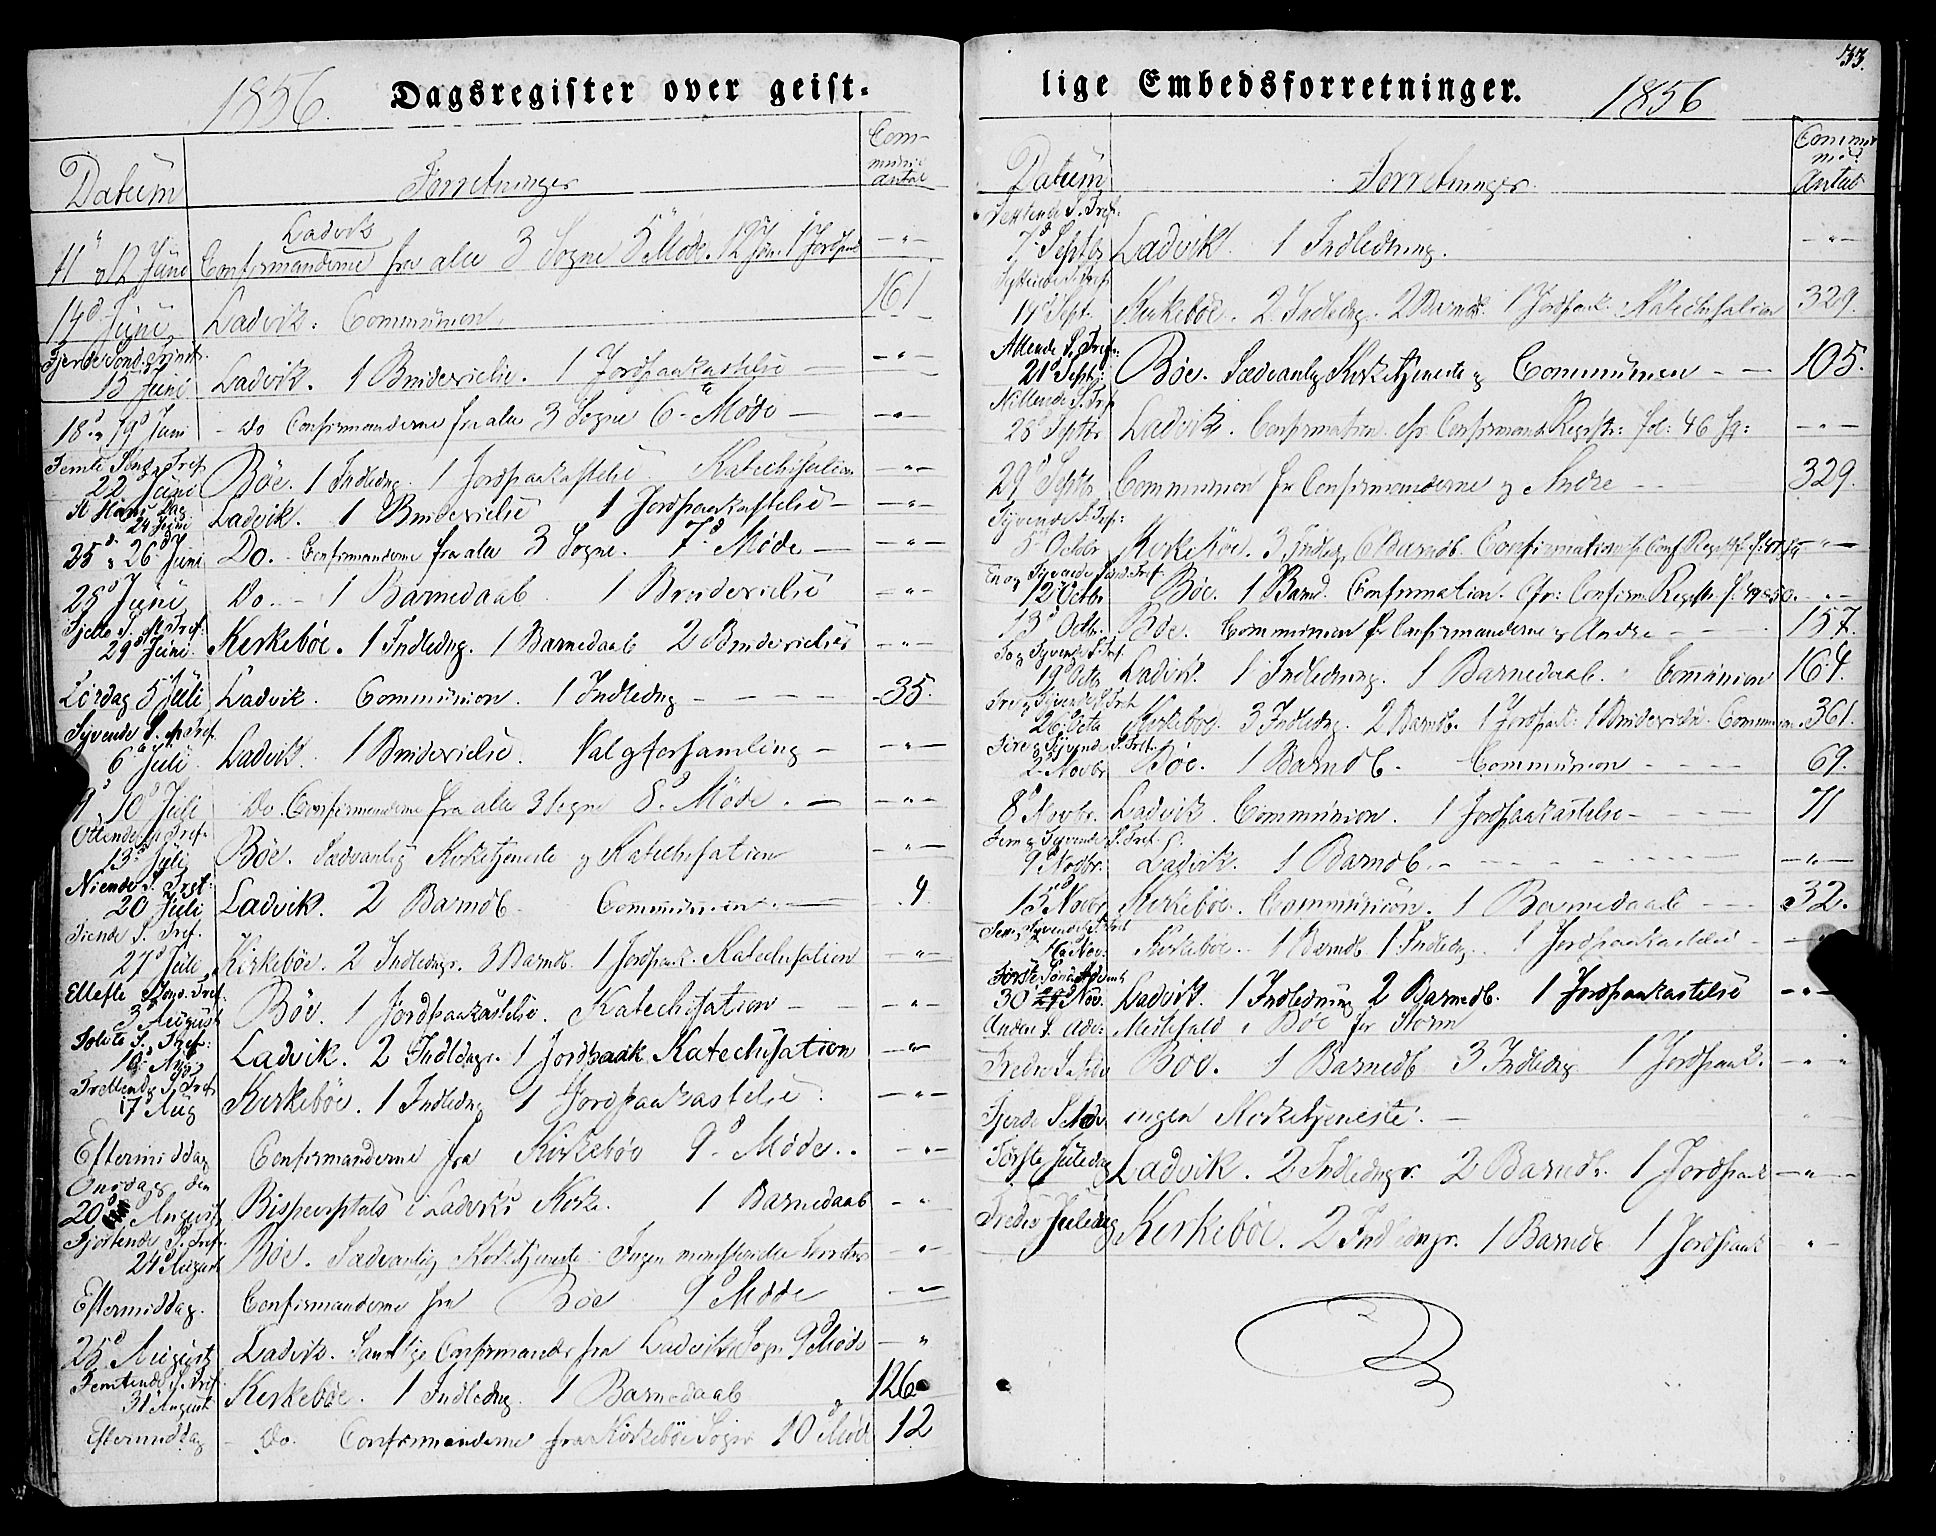 1856. Dagsregister over geist-
Datum Forretninger Com-
muni
antal
Ladvik
11 og 12 Juni Confirmanderne fra alle 3 Sogne 5te Møde. 12 Jun. 1 Jordpaak — " —
14d Juni Ladvik. Communion 161
Fjerde Sond. Trinit.
15 Juni Ladvik. 1 Brudevielse. 1 Jordpaakastelse — — " —
18 og 19d Juni - Do Confirmanderne fra alle 3 Sogne 6te Møde — — " —
Femte Sond. Tref.
22 Juni Böe. 1 Indledng. 1 Jordpaakastelse Katechisation — " —
St Hans Dag
24 Juni Ladvik. 1 Brudevielse 1 Jordpaakastelse — — " —
25 og 26d Juni Do. - Confirmanderne fra alle 3 Sogne. 7d Møde — — " —
28d Juni Do. - 1 Barnedaab 1 Brudevielse — " —
Sjette S. Tref.
29d Juni Kirkeböe. 1 Indledng. 1 Barnedaab 2 Brudevielser — " —
Lördag 5 Juli Ladvik. Communion. 1 Indledng - — — — 35.
Syvende S. Tref.
6 Juli Ladvik. 1 Brudevielse. Valgforsamling — — " —
9 10d Juli Do. Confirmanderne fra alle 3 Sogne 8d Møde. — — " —
Ottende S. Tref.
13d Juli Böe. Sædvanlig Kirketjeneste og Katechisation — " —
Niende S. Tref.
20 Juli Ladvik. 2 Barndb. Communion. — 4.
Tiende S. Tref.
27d Juli Kirkeböe. 2 Indledngr. 3 Barndb. 1 Jordpaak. Katechisation — " —
Ellefte Sond. Tref.
3d August Böe. 1 Jordpaakastelse. Katechisation — — " —
Tolvte S. Tref.
10d Aug. Ladvik. 2 Indledngr. 1 Jordpaak. Katechisation — " —
Trettende S. Tref
17 Aug Kirkeböe. 1 Indledng 1 Jordpaakastelse. — " —
Eftermiddag Confirmanderne fra Kirkeböe 9d Møde.. — " —
Onsdag den
20d August Bispevisitats i Ladviks Kirke. 1 Barnedaab — "
Fjortende S. Tref.
24d August Böe. Sædvanlig Kirketjeneste. Ingen — " —
Eftermiddag. Confirmanderne fra Böe 9d Møde — " —
25d August Ladvik. Samtlige Confirmander fra Ladviks Sogn 9d Møde — "
Femtende S. Tref.
31 August Kirkeböe. 1 Indledng. 1 Barnedaab 126
Eftermiddag - Do. Confirmanderne fra Kirkeböe Sogn 10d Møde 12
33.
lige Embedsforretninger. 1856
Datum Forretninger. Commu
nic.
Antal
Sextende S. Tref.
7d Septbr Ladvik. 1 Indledning. — " —
Syttende S. Tref.
14d Sept. Kirkeböe. 2 Indledng. 2 Barndb. 1 Jordpaak. Katechisation 329.
Attende S. Tref.
21d Septbr. Böe. Sædvanlig Kirketjeneste og Communion — — 105.
Nittende S. Tref
28d Septbr Ladvik. Confirmation. cfr Confirmand. Registr. fol: 46 sq: — " —
29d Septbr Communion for Confirmanderne og Andre - - 329.
Tyvende S. Tref.
5d Octbr Kirkeböe. 3 Indledng 6 Barndb. Confirmation cfr. Conf. Registr. " —
En og Tyvende Sond. Tref
12 Octbr Böe. 1 Barnd. Confirmation. Cfr: Confirm. Registr. f. 49 & 50. " —
13d Octbr. Böe. Communion for Confirmanderne og Andre - - 157.
To og Tyvende S. Tref
19d Octbr Ladvik. 1 Indledning. 1 Barnedaab. Communion 164.
Tre og Tyvende S. Tref.
26d Octbr Kirkeböe. 3 Indledng. 2 Barndb. 1 Jordpaak. 1 Brudevielse. Communion 361.
Fire og Tyvende S. Tref.
2d Novbr Böe. 1 Barndb. Communion - - - - 69.
8d Novbr. Ladvik. Communion. 1 Jordpaakastelse - - - 71
Fem og Tyvende S. Tref.
9d Novbr. Ladvik. 1 Barndb. - - - - - — " —
15d Novbr Kirkeböe. Communion. 1 Barnedaab - - - 32.
Sex og Tyvende S. Tref
16 Nov. Kirkeböe. 1 Barndb 1 Indledng. 1 Jordpaakastelse - — "
Første Sönd. Advent
30 Nov. Ladvik. 1 Indledning 2 Barnedb. 1 Jordpaakastelse — " —
Anden S. Adv. Messefald i Böe for Storm
Tredie S. Adv Böe. 1 Barnedb 3 Indledng 1 Jordpaak. — " "
Fjerde S. Adv. ingen Kirketjeneste. —
Første Juledag Ladvik. 2 Indledngr. 2 Barndb. 1 Jordpaak — " —
Tredie Juledag Kirkeböe. 2 Indledngr. 1 Barndb 1 Jordpaak — " —